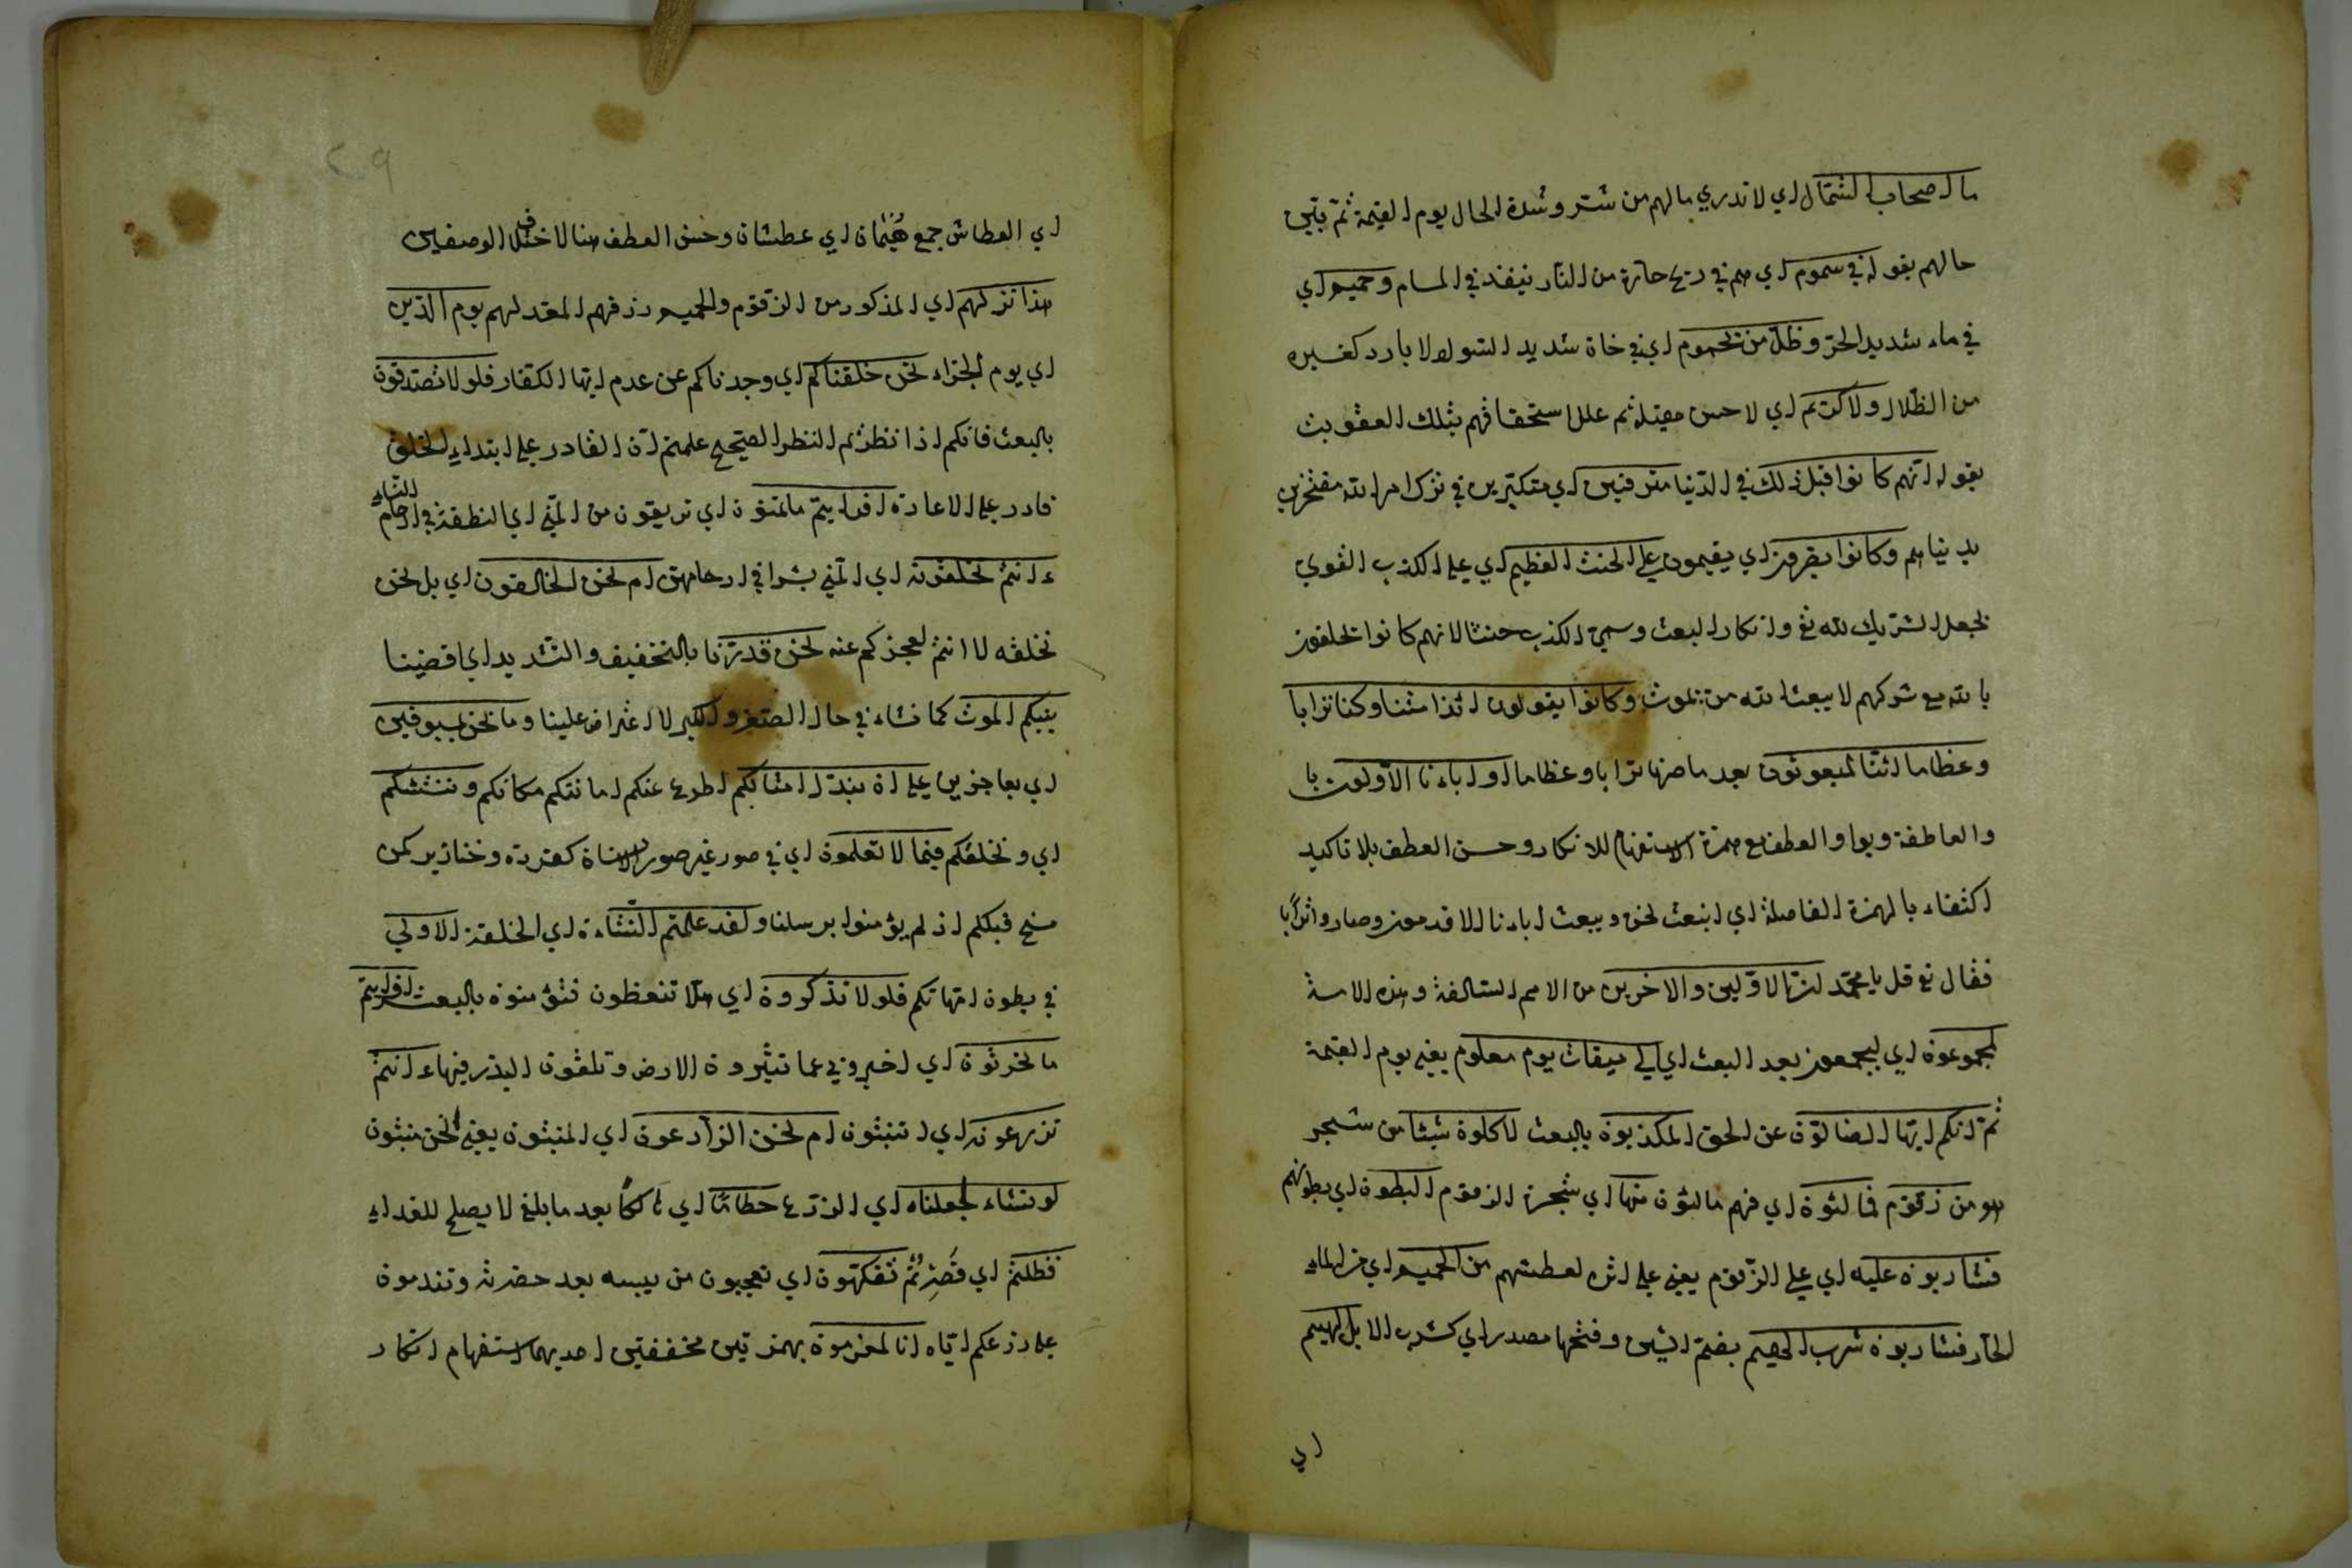 ما اصحاب الشمال اي لا تدري ما لهم من شر وشدة الحال يوم القيمة ثم يبين
حالهم بقوله في سموم اي هم في ريح حارة من النار ينفذ في المسام وحميم اي
في ماء شديد الحر وظل من يحموم اي في دخان شديد السواد لا بارد كغيره
من الظلال ولا كريم اي لا حسن مقيله ثم علل استحقاقهم بتلك العقوبة
بقوله انهم كانوا قبل ذلك في الدنيا مترفين اي متكبرين في ترك امر الله مفتخرين
بدنياهم وكانوا يصرون اي يقيمون على الحنث العظيم اي على الكذب القوي
بجعل الشريك لله تع وانكار البعث وسمي الكذب حنثا لانهم كانوا يحلفون
بالله مع شركهم لا يبعث الله من يموت وكانوا يقولون ائذا متنا وكنا ترابا
وعظاما ائنا لمبعوثون بعد ما صرنا ترابا وعظاما او اباءنا الاولون با
والعاطفة وبواو العطف مع همزة الاستفهام للانكار وحسن العطف بلا تاكيد
اكتفاء بالهمزة الفاصلة اي انبعث نحن ويبعث اباءنا الاقدمون وصاروا ترابا
فقال تع قل يا محمد ان الاولين والاخرين من الامم السالفة وهذه الامة
لمجموعون اي ليجمعون بعد البعث اي الى ميقات يوم معلوم يعني يوم القيمة
ثم انكم ايها الضالون عن الحق المكذبون بالبعث لاكلون شيئا من شجر
هو من زقوم فمالئون اي فهم مالئون منها اي شجرة الزقوم البطون اي بطونهم
فشاربون عليه اي على الزقوم يعني على اثره لعطشهم من الحميم اي من الماء
الحار فشاربون شرب الهيم بضم الشين وفتحها مصدر اي كشرب الابل الهيم
اي
٢٩
اي العطاش جمع هيمان اي عطشان وحسن العطف هنا لاختلاف الوصفين
هذا نزلهم اي المذكور من الزقوم والحميم رزقهم المعد لهم يوم الدين
اي يوم الجزاء نحن خلقناكم اي وجدناكم عن عدم ايها الكفار فلولا تصدقون
بالبعث فانكم اذا نظرتم النظر الصحيح علمتم ان القادر على ابتداء الخلق
قادر على الاعادة افرايتم ما تمنون اي تريقون من المني اي النطفة في ارحام النساء
ءانتم تخلقونه اي المني بشرا في ارحامهن ام نحن الخالقون اي بل نحن
نخلقه لا انتم لعجزكم عنه نحن قدرنا بالتخفيف والتشديد اي قضينا
بينكم الموت كما نشاء في حال الصغر والكبر لا اعتراض علينا وما نحن بمسبوقين
اي بعاجزين على ان نبدل امثالكم اطوع عنكم امانتكم مكانكم وننشئكم
اي ونخلقكم فيما لا تعلمون اي في صور غير صور الانسان كقردة وخنازير كمن
مسخ قبلكم اذ لم يؤمنوا برسلنا ولقد علمتم النشاءة اي الخلقة الاولى
في بطون امهاتكم فلولا تذكرون اي هلا تتعظون فتؤمنون بالبعث افرايتم
ما تحرثون اي اخبروني عما تثيرون الارض وتلقون البذر فيها ءانتم
تزرعونه اي اتنبتون ام نحن الزارعون اي المنبتون يعني نحن منبتون
لو نشاء لجعلناه اي الزرع حطاما اي بعد ما بلغ لا يصلح للغداء
فظلتم اي فصرتم تفكهون اي تعجبون من يبسه بعد خضرته وتندمون
على زرعكم اياه انا لمغرمون بهمزتين مخففتين احديهما استفهام انكار